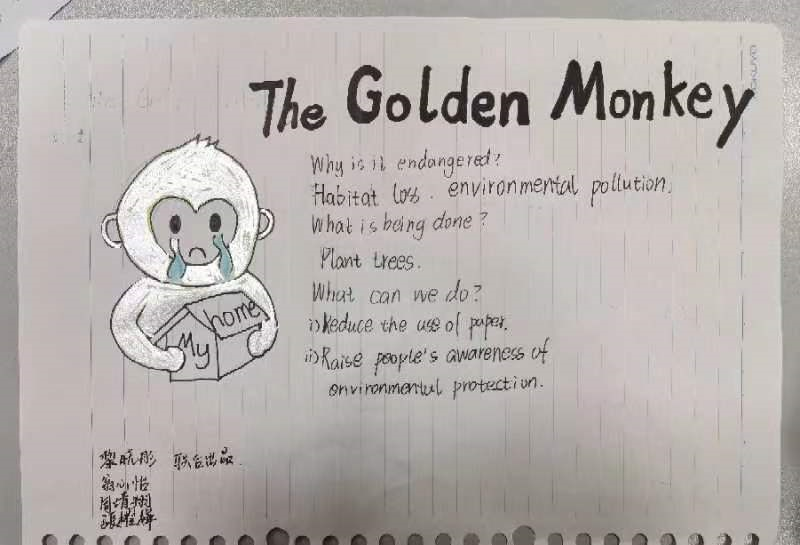 The Golden Monkey
Why is it endangered?
Habitat loss. environmental pollution.
What is being done?
Plant trees.
What can we do?
i) Reduce the use of paper.
ii) Raise people's awareness of
environmental protection.
My
home
联合出品.
心怡